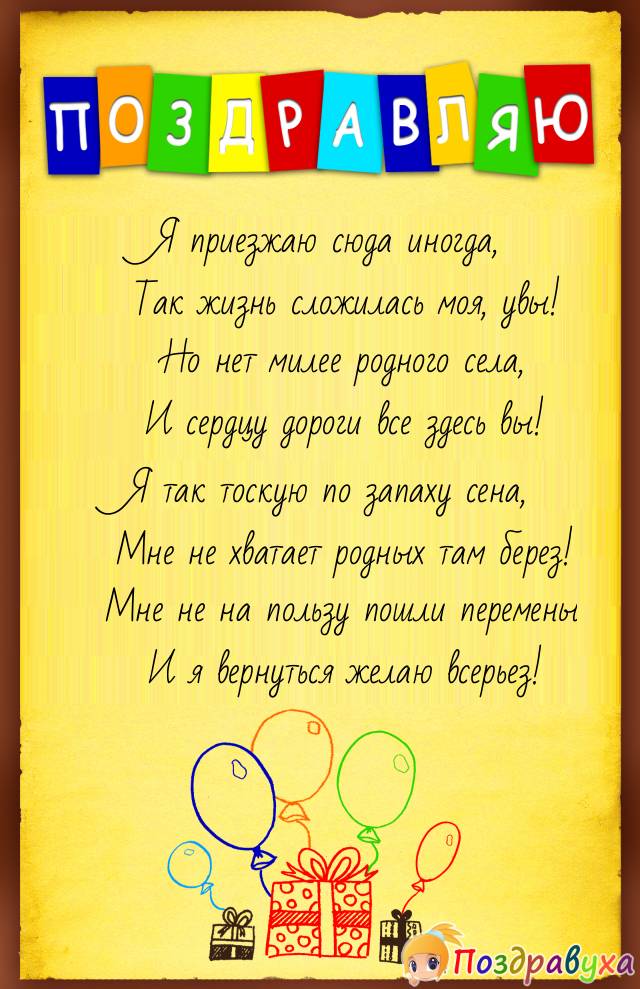 ПОЗДРАВЛЯЮ
Я приезжаю сюда иногда,
Так жизнь сложилась моя, увы!
Но нет милее родного села,
И сердцу дороги все здесь вы!
Я так тоскую по запаху сена,
Мне не хватает родных там берез!
Мне не на пользу пошли перемены
И я вернуться желаю всерьез!
Поздравуха